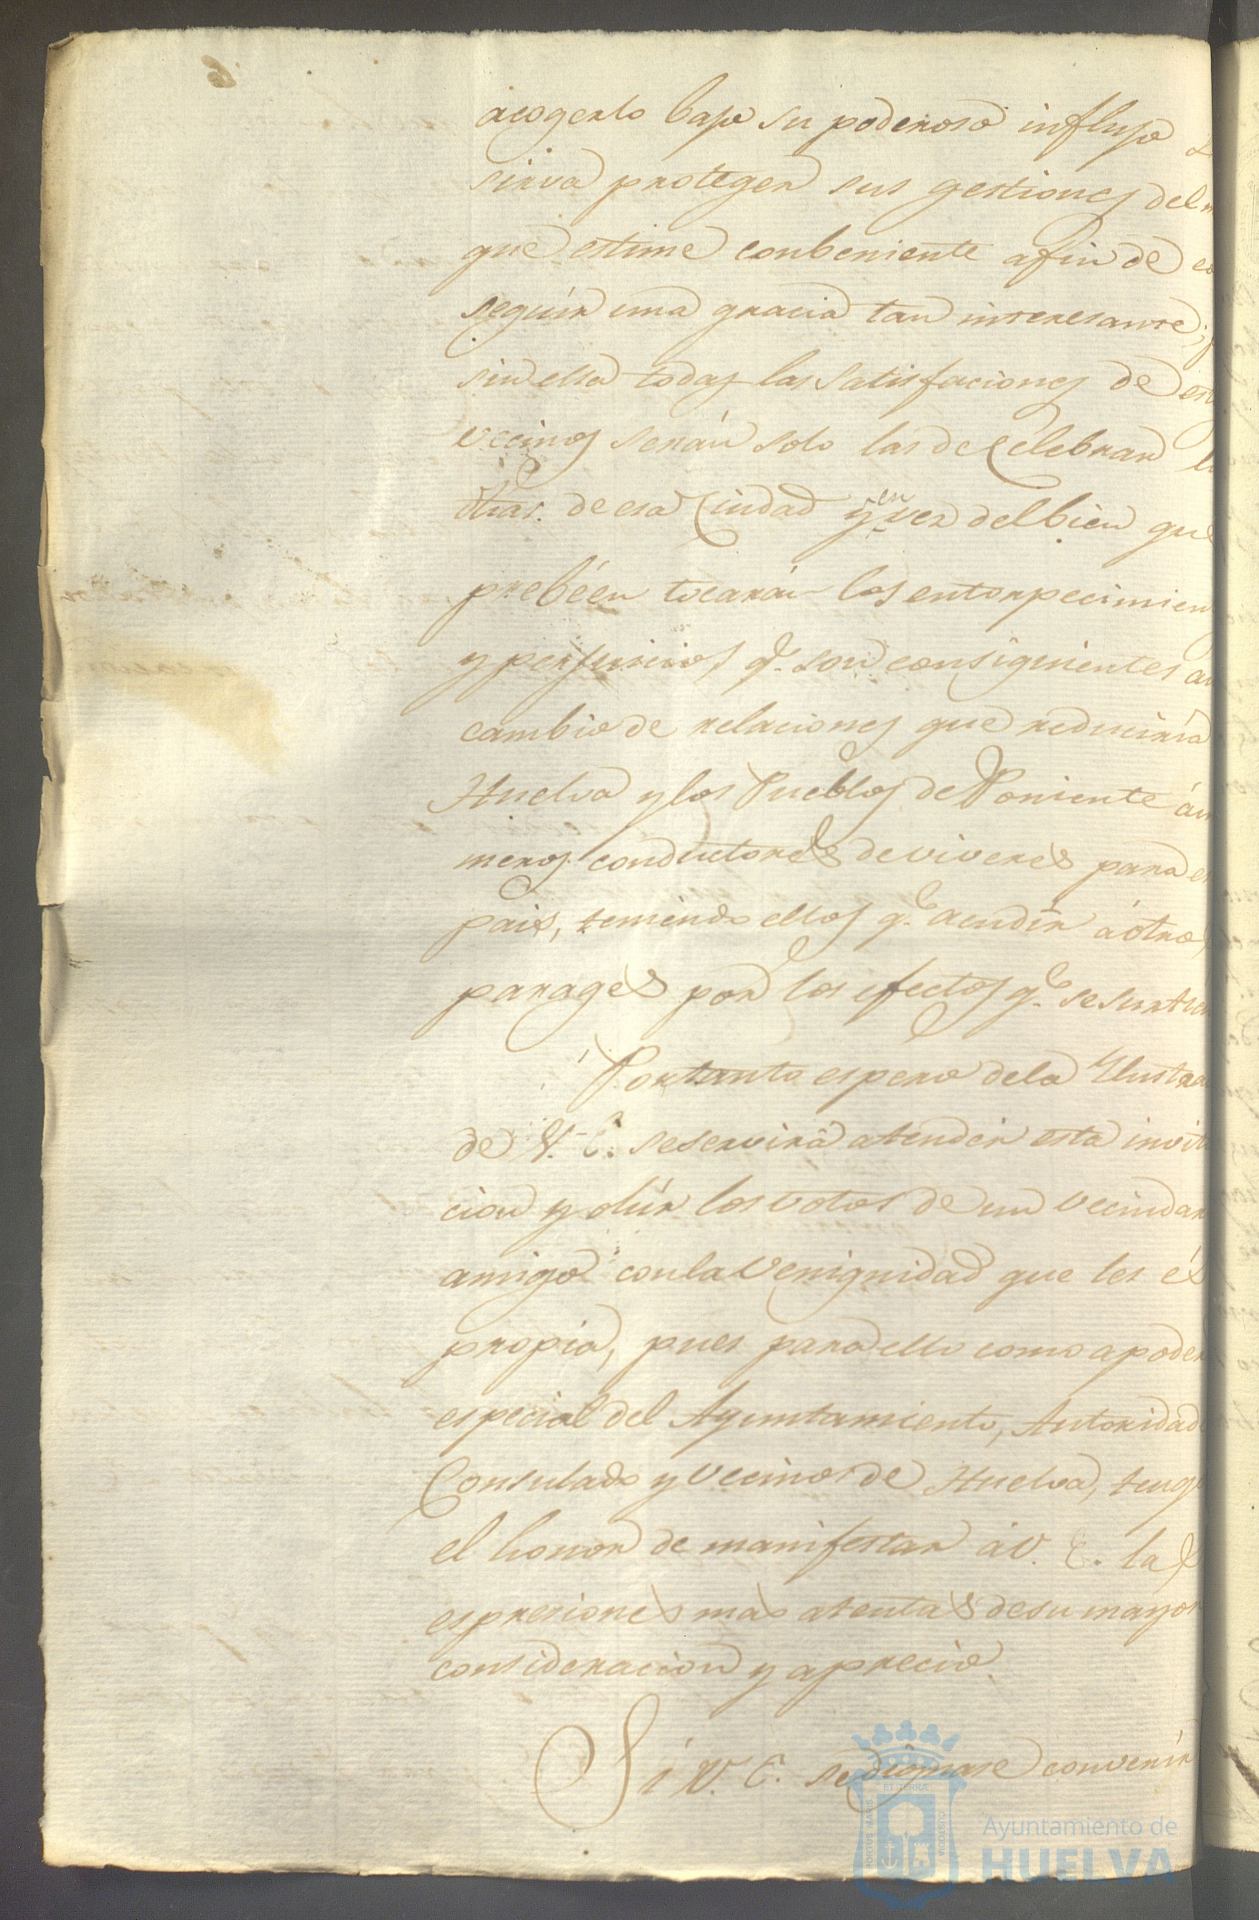 acogerlo bajo su poderoso influjo
sirva proteger sus gestiones del m
que estime conbeniente afin de co
seguir una gracia tan interesante;
sin ella todas las satisfaciones de est
vecinos serán solo las de Celebrar l
dhas. de esa Ciudad y en vez del bien que
prebéen tocarán los entorpecimien
y perjuicios qe. son consiguientes al
cambio de relaciones que reduciría
Huelva y los Pueblos de Poniente á un
meros conductores de viveres para e
pais, teniendo ellos qe. acudir á otro
parages por los efectos qe. se surten
Portanto espero dela Ilustra
de V. E. seservirá atender esta invit
cion y oír los votos de un vecindar
amigo con la Venignidad que les és
propia, pues para ello como apoder
especial del Ayuntamiento, Autoridad
Consulado y vecinos de Huelva, teng
el honor de manifestar á V. E. las
espresiones mas atentas de su mayor
consideracion y aprecio.
Si V. E. se dignase convenir
PORTUS MARIS ET TERRAE CUSTODIA
Ayuntamiento de
HUELVA